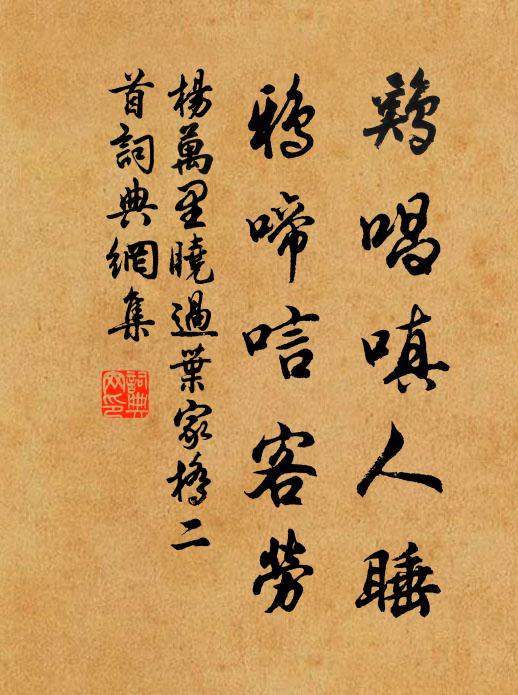 鷄唱嗔人睡
鴉啼唁客勞
楊萬里曉過葉家橋二
首詞典網集
詞典
網印